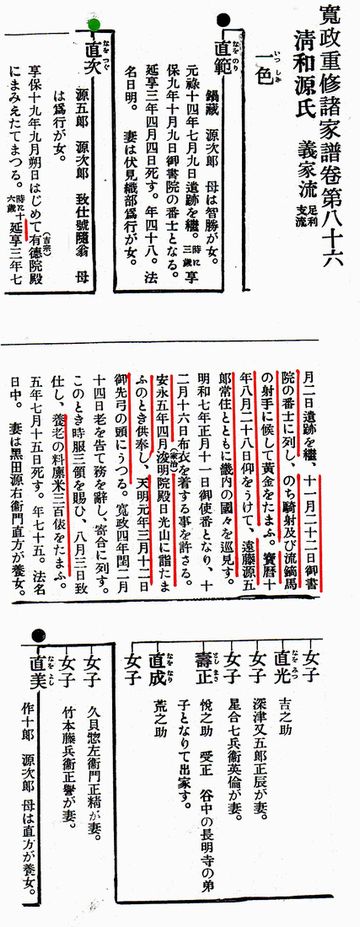 寛政重修諸家譜卷第八十六
清和源氏 義家流 足利支流
一色 いつしき
直範 なをのり
鍋藏 源次郎 母は智勝が女。
元祿十四年七月九日遺跡を繼。時に三歲 享
保九年十月九日御書院の番士となる。
延享三年四月四日死す。年四十八。法
名日明。 妻は伏見織部爲行が女。
直次 なをつぐ
源五郎 源次郎 致仕號隨翁 母
は爲行が女。
享保十九年九月朔日はじめて有德院殿(吉宗)
にまみえたてまつる。時に十六歲 延享三年七
月二日遺跡を繼、十一月二十二日御書
院の番士に列し、のち騎射及び流鏑馬
の射手に候して黃金をたまふ。寶曆十
年八月二十八日仰をうけて、遠藤源五
郎常住とともに畿內の國々を巡見す。
明和七年正月十一日御使番となり、十
二月十六日布衣を着する事を許さる。
安永五年四月浚明院殿(家治)日光山に詣たま
ふのとき供奉し、天明元年三月十二日
御先弓の頭にうつる。寬政四年閏二月
十四日老を告て務を辭し、寄合に列す。
このとき時服三領を賜ひ、八月三日致
仕し、養老の料廩米三百俵をたまふ。
五年七月十五日死す。年七十五。法名
日中。 妻は黑田源右衞門直方が養女。
女子
直光 なをみつ
吉之助
女子
深津又五郎正辰が妻。
女子
星合七兵衞英倫が妻。
壽正
悅之助 受正 谷中の長明寺の弟
子となりて出家す。
直成 なをなり
荒之助
女子
女子
久貝惣左衞門正精が妻。
女子
竹本藤兵衞正譽が妻。
直美 なをよし
作十郎 源次郎 母は直方が養女。